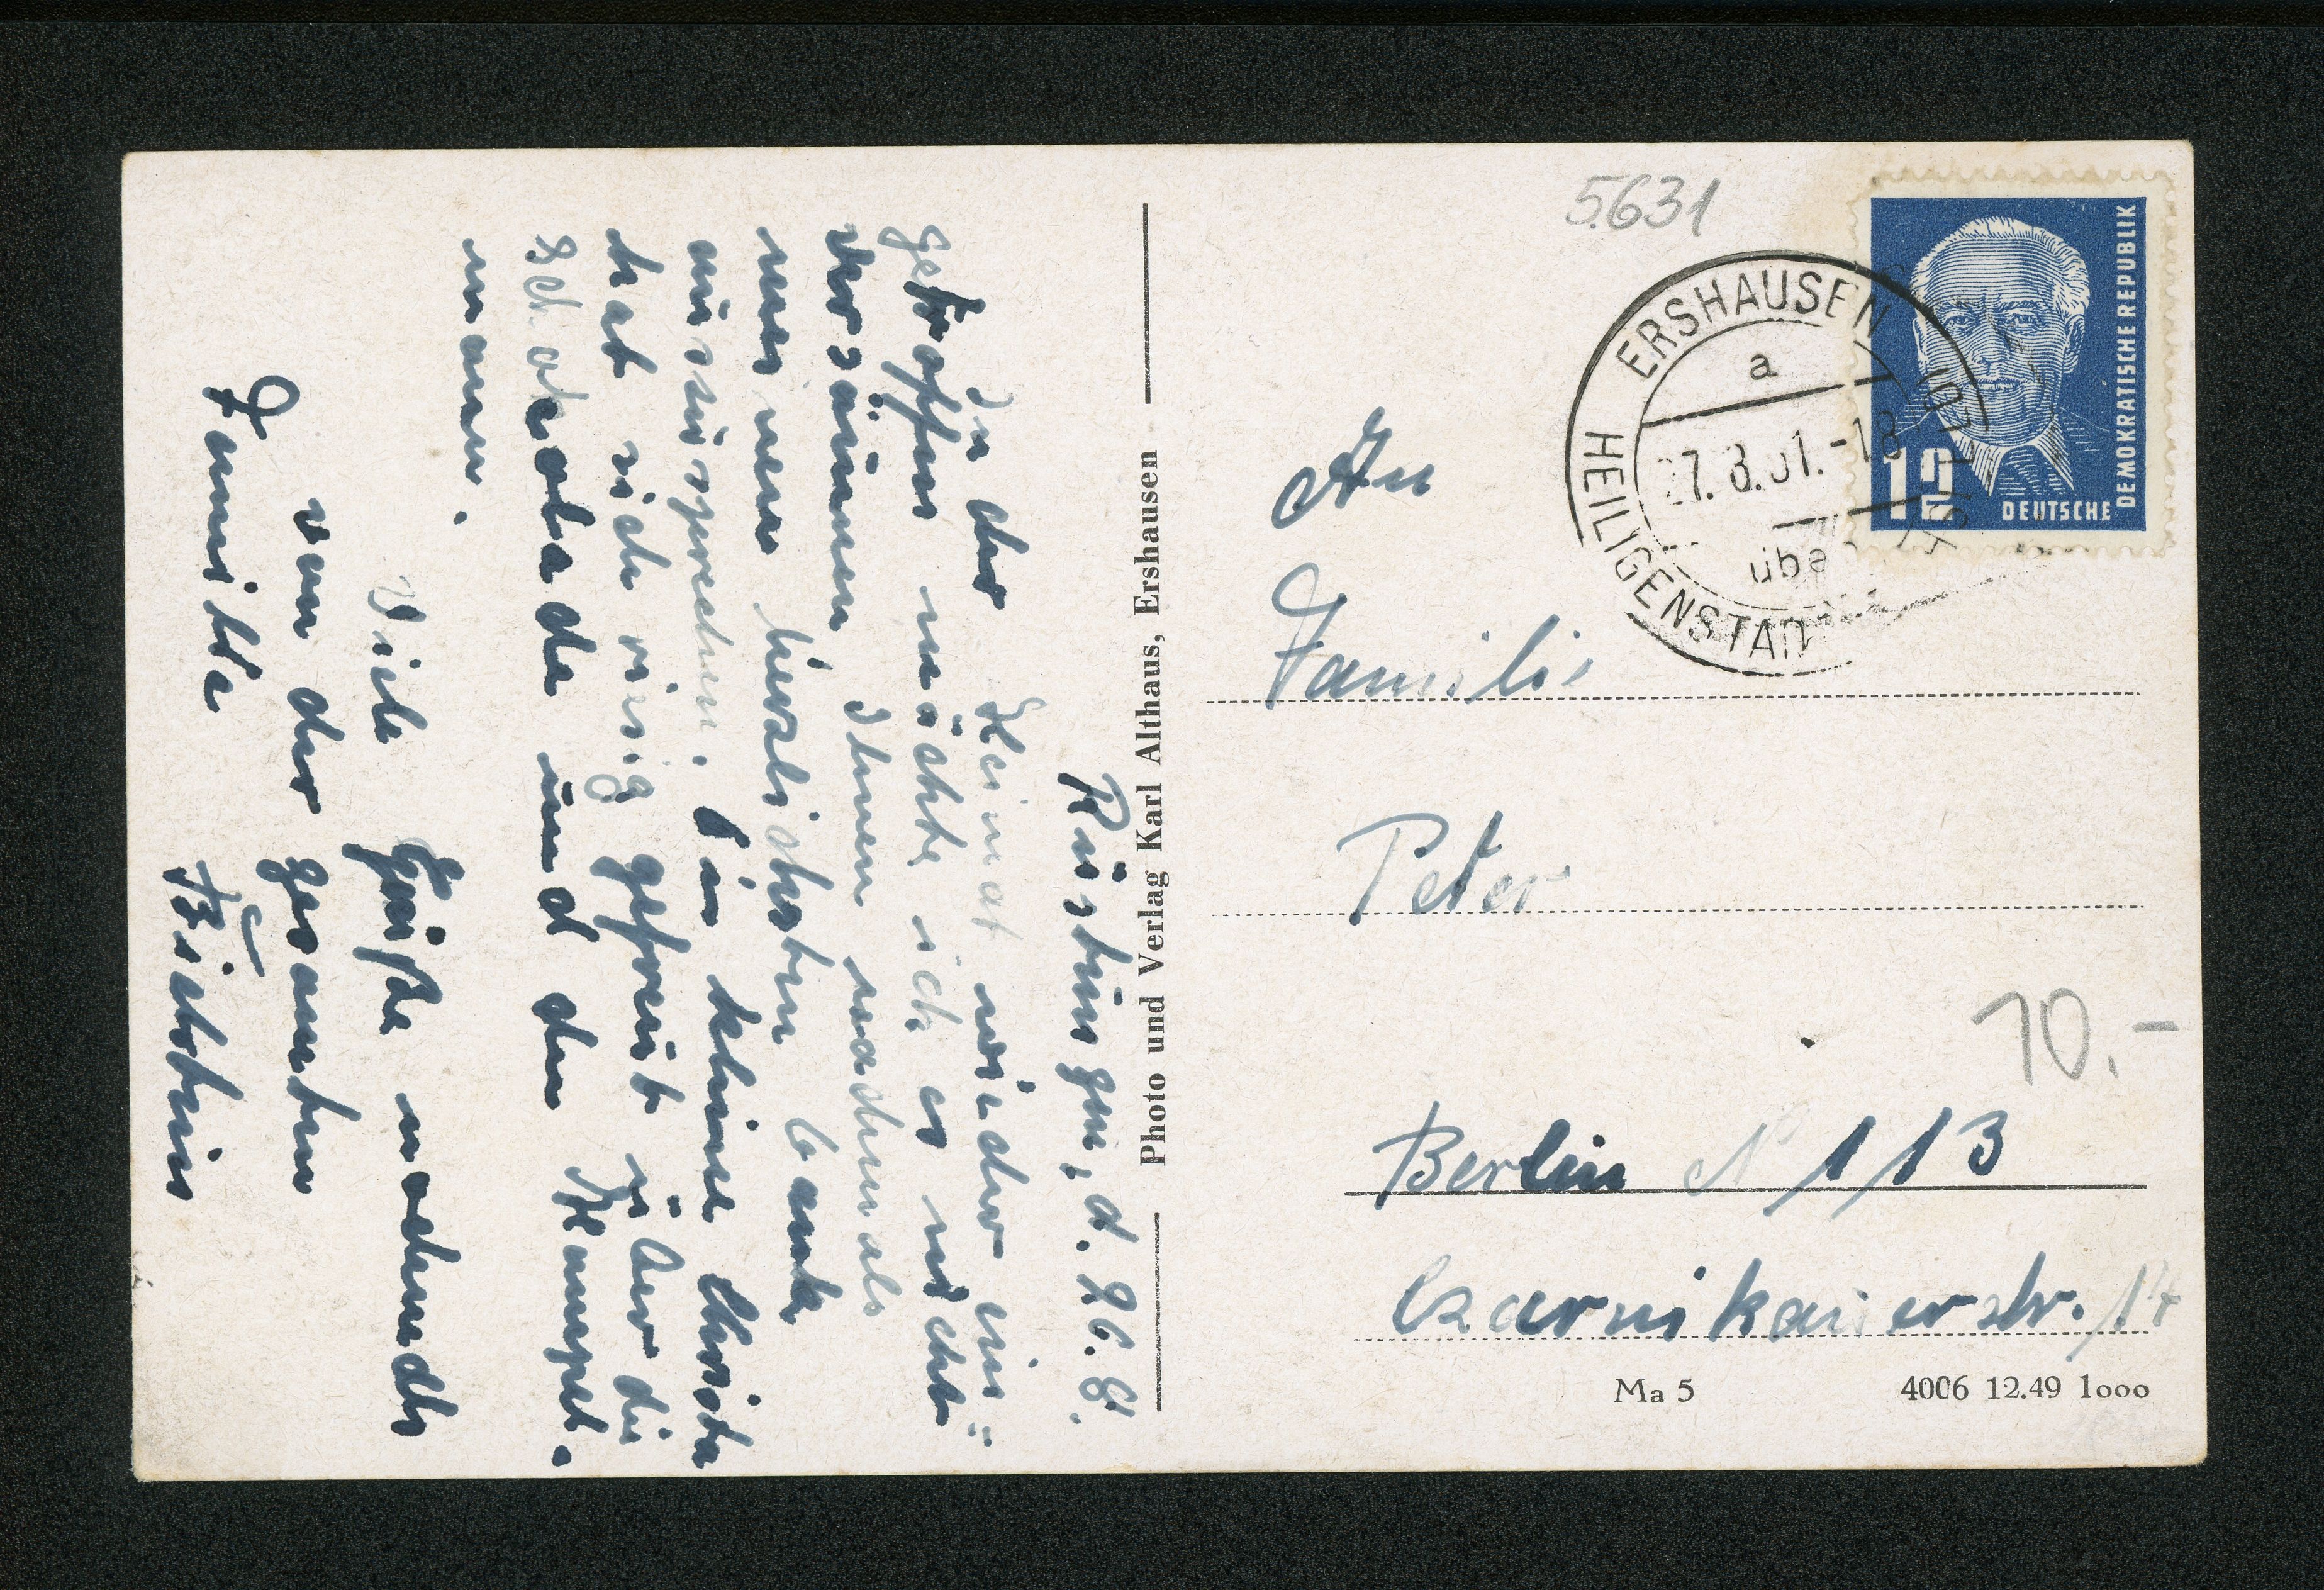 Rüstungen, d. 26. 8.
In der Heimat wieder ein=
getroffen möchte ich es nicht
versäumen Ihnen nochmals
meinen herzlichsten Dank
auszusprechen. Die kleine Christa
hat sich riesig gefreut über die
Schokolade und den
Viele Grüße nochmals
von der gesamten
Familie
Photo und Verlag Karl Althaus, Ershausen
5631
ERSHAUSEN
a
27.8.51.-18
HEILIGENSTADT
DEUTSCHE DEMOKRATISCHE REPUBLIK
12
An
Familie
Peter
10.-
Berlin N 113
Czarnikauerstr. 14
Ma 5
4006 12.49 1000